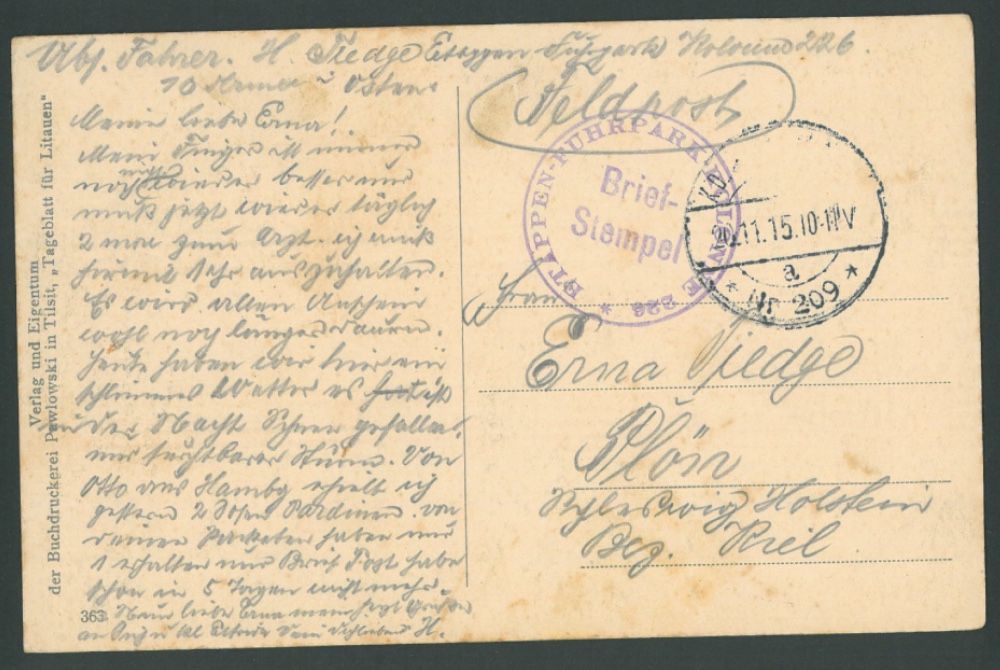 Abs. Fahrer. H. Tiedge Etappen Fuhrpark Kolonne 226.
10 Armee Osten.
Feldpost
Meine liebe Erna!
Mein Finger ist immer
noch nicht wieder besser und
muß jetzt wieder täglich
2 mal zum Arzt. ich muß
auszuhalten.
Es wird allen Anschein
wohl noch länger dauern.
Heute haben wir hier ein
schlimmes Wetter es ist
in der Nacht Schnee gefallen.
und furchtbarer Sturm. Von
Otto aus Hambg erhielt ich
gestern 2 Dosen Sardinen. von
deinen Packeten habe nur
1 erhalten und Brief Post habe
schon in 5 Tagen nicht mehr.
Nun liebe Erna
H.
ETAPPEN-FUHRPARK-KOLONNE 226 *
Brief-
Stempel
11.15.10-11V
a
* Nr 209 *
Frau
Erna Tiedge
Plön
Schleswig Holstein
Bez. Kiel.
Verlag und Eigentum
der Buchdruckerei Pawlowski in Tilsit, „Tageblatt für Litauen“
363